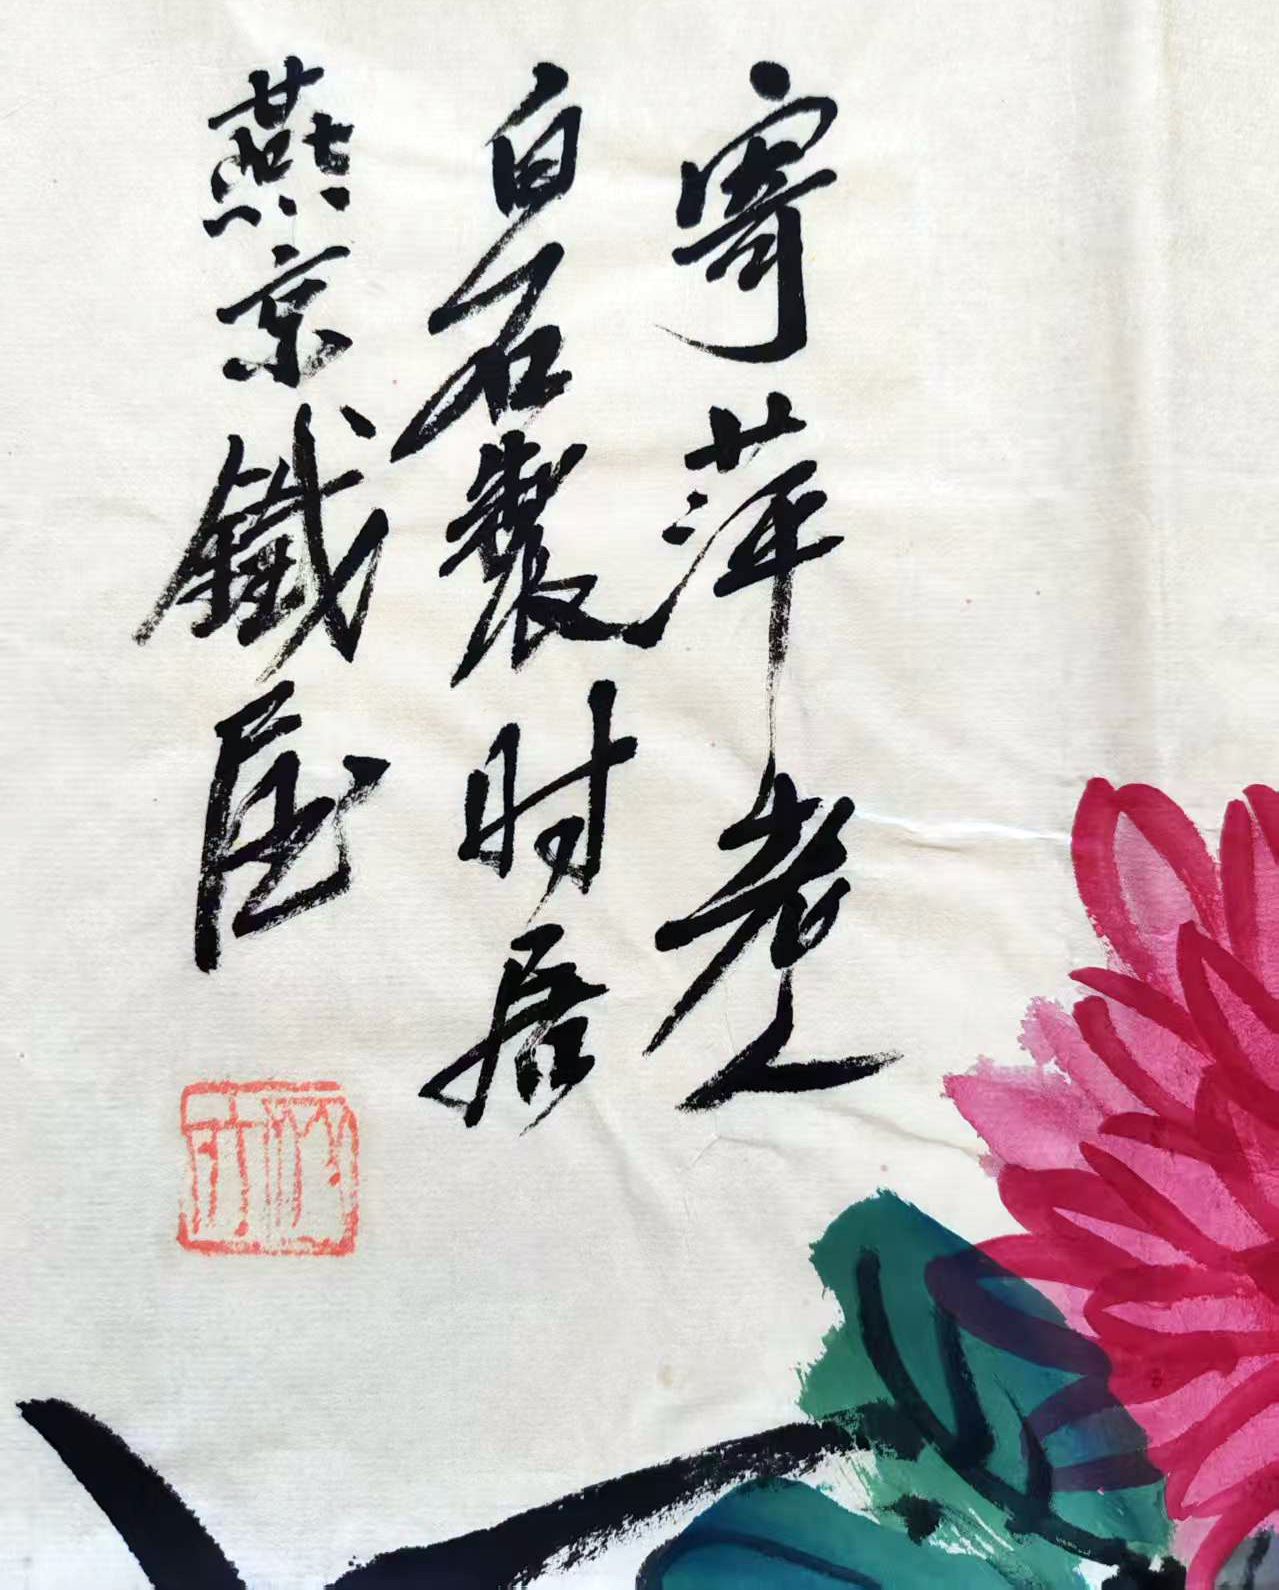 寄萍老人
白石製时居
燕京鐵屋